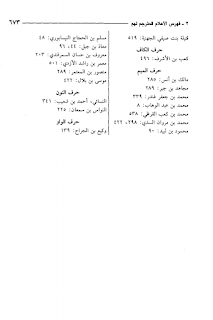 ٢ - فهرس الأعلام المترجم لهم
٦٧٣
قتيلة بنت صيفي الجهنية: ٥١٩
حرف الكاف
كعب بن الأشرف: ٤٩٦
حرف الميم
مالك بن أنس: ٢٨٥
مجاهد بن جبر: ٢٨٩
محمد بن جعفر غندر: ٣٣٩
محمد بن عبد الوهاب: ٨
محمد بن كعب القرظي: ٥٣٨
محمد بن مروان السدي: ٢٩٨، ٤٢٢
محمود بن لبيد: ٩٠
مسلم بن الحجاج النيسابوري: ٤٨
معاذ بن جبل: ٤٤، ٩٦
معروف بن حسان السمرقندي: ٢٠٣
معمر بن راشد الأزدي: ٥٠١
منصور بن المعتمر: ٢٨٩
موسى بن بلال: ٤٢٢
حرف النون
النسائي، أحمد بن شعيب: ٣٤١
النواس بن سمعان: ٢٢٥
حرف الواو
وكيع بن الجراح: ١٣٩